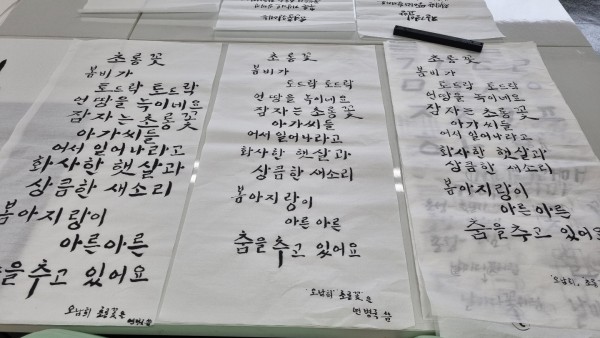 초롱꽃
봄비가
토드락 토드락
언땅을 녹이네요
잠자는 초롱꽃
아가씨들
어서 일어나라고
화사한 햇살과
상큼한 새소리
봄아지랑이
아른아른
춤을 추고 있어요
오남희 초롱꽃은
초롱꽃
봄비가
토드락 토드락
언땅을 녹이네요
잠자는 초롱꽃
아가씨들
어서 일어나라고
화사한 햇살과
상큼한 새소리
봄아지랑이
아른 아른
춤을 추고 있어요
오남희 초롱꽃은
쓰
초롱꽃
봄비가
토드락 토드락
언땅을 녹이네요
잠자는 초롱꽃
아가씨들
어서 일어나라고
화사한 햇살과
상큼한 새소리
봄아지랑이
아른 아른
춤을 추고 있어요
오남희, 초롱꽃